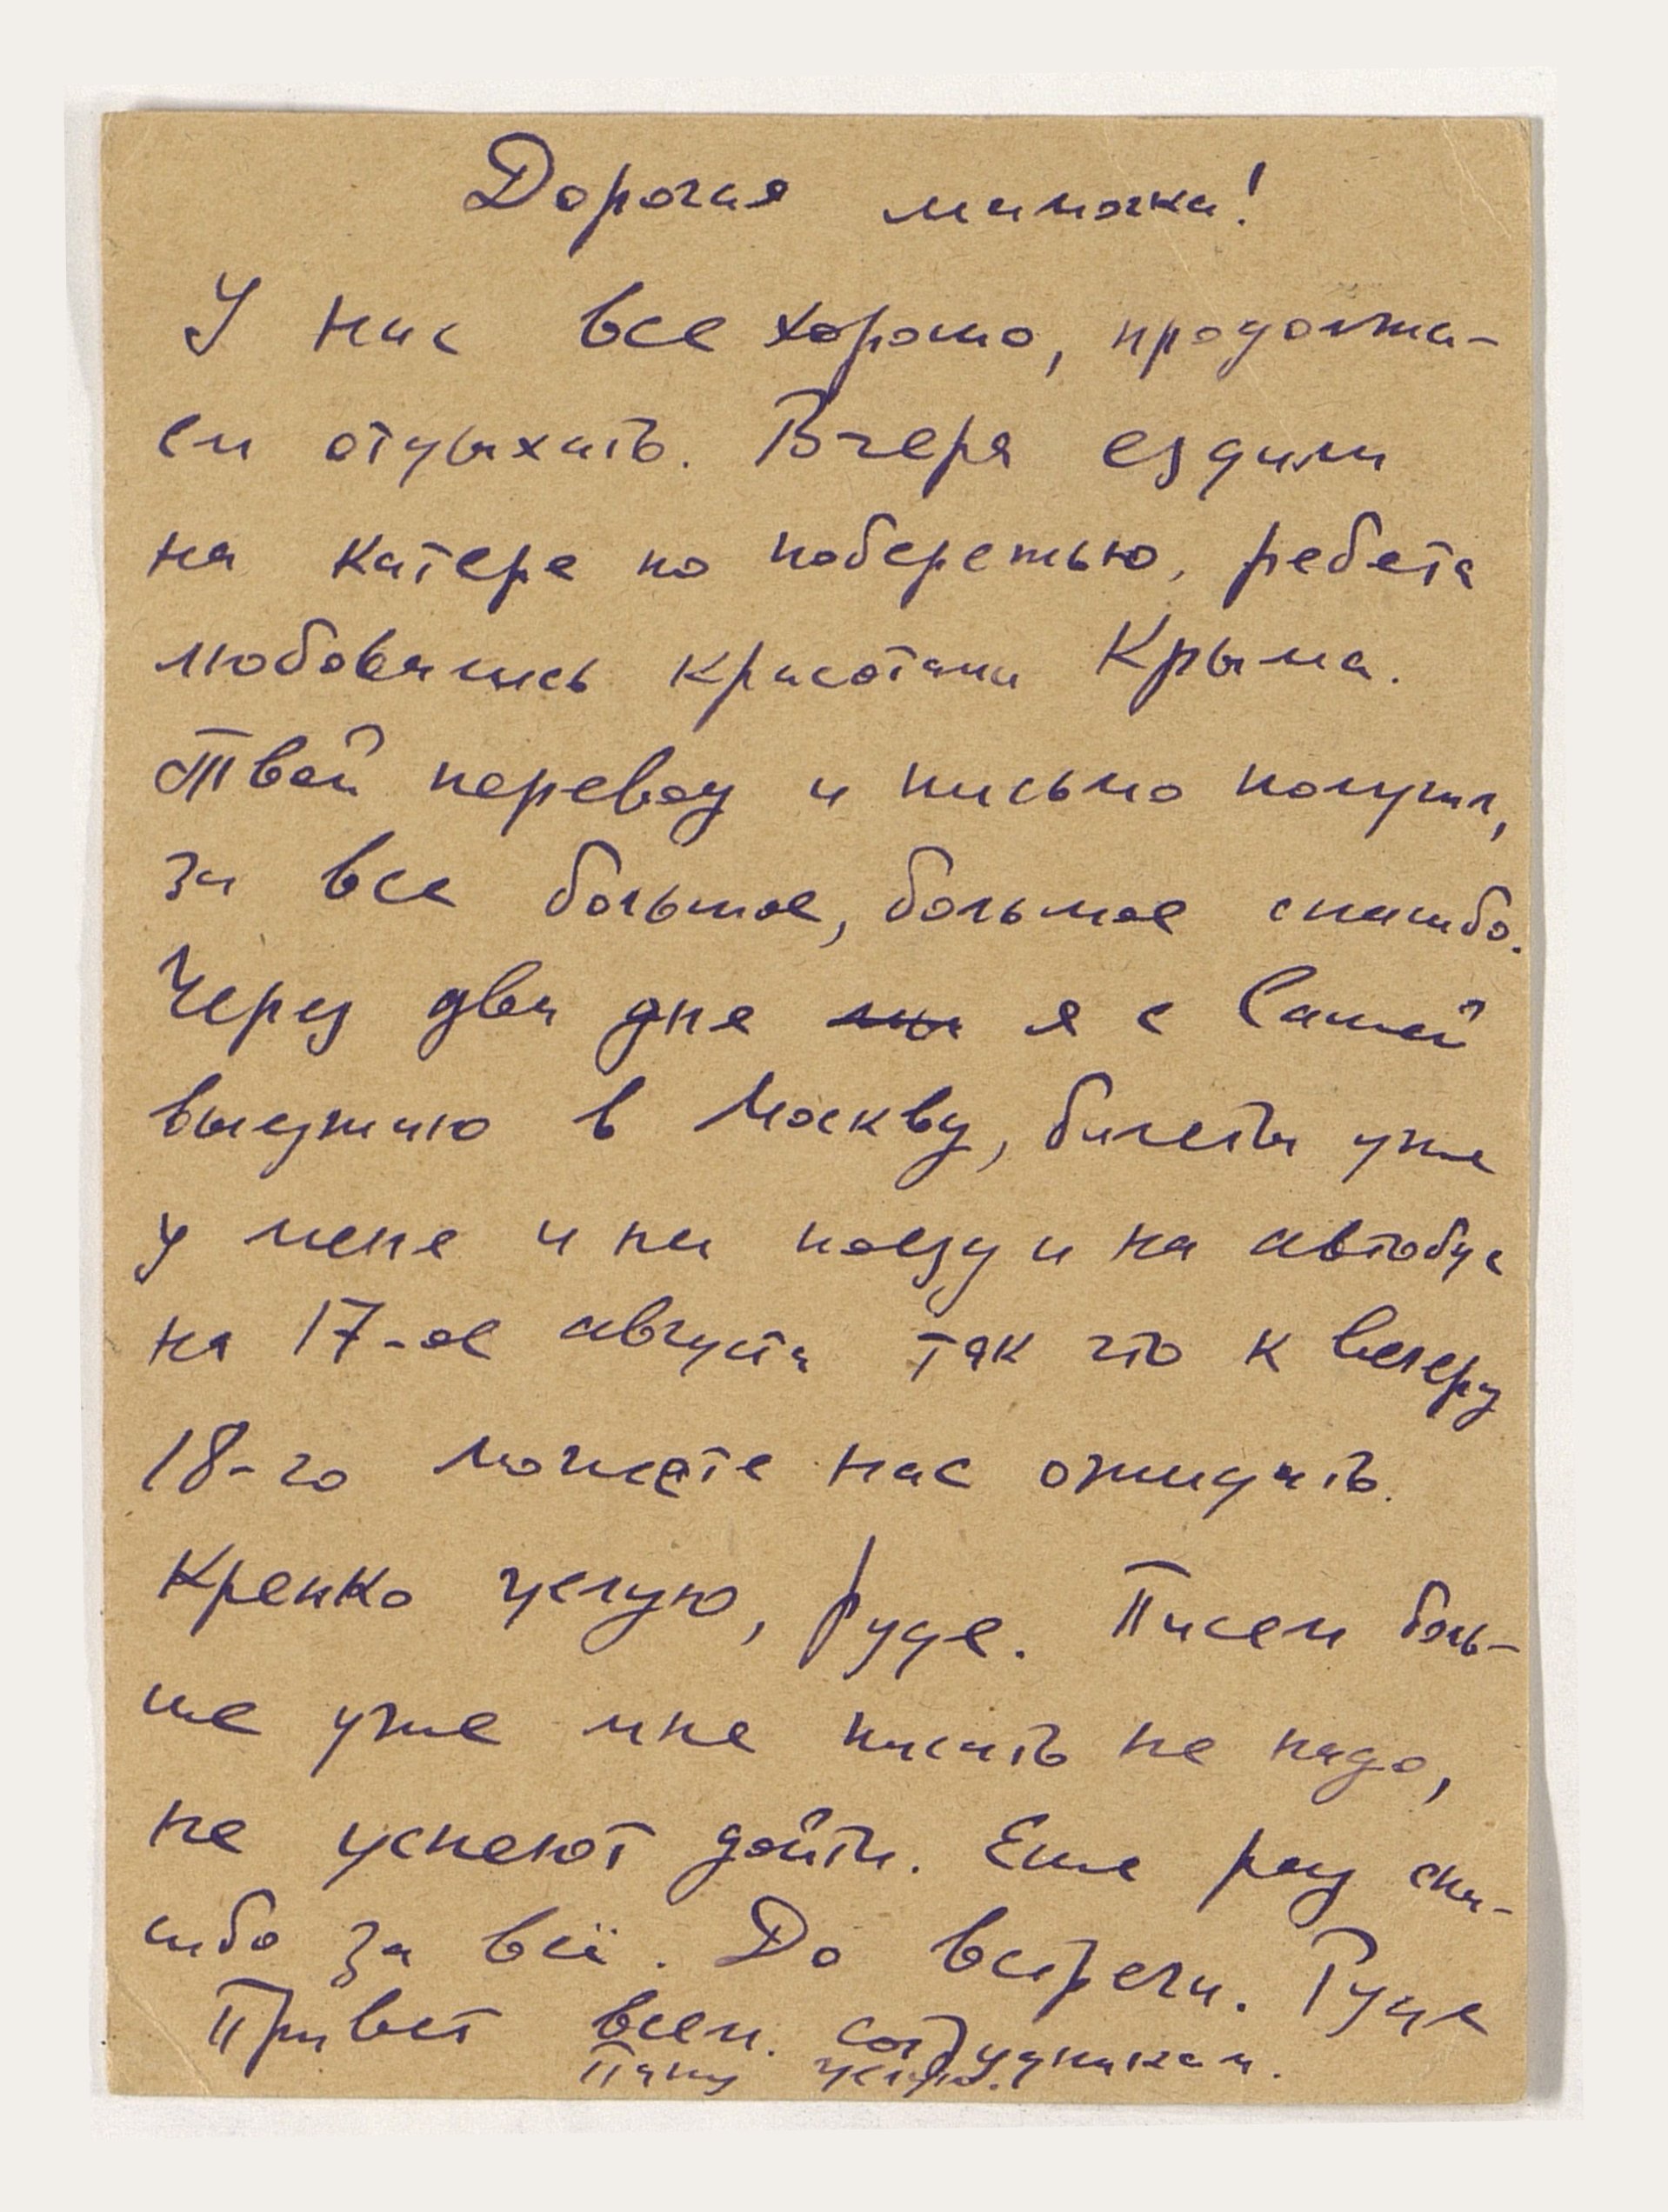 Дорогая мамочка!
У нас все хорошо, продолжа-
ем отдыхать. Вчера ездили
на катере по побережью, ребята
любовались красотами Крыма.
Твой перевод и письмо получил,
за все большое, большое спасибо.
Через два дня мы я с Сашей
выезжаю в Москву, билеты уже
у меня и на поезд и на автобус
на 17-ое августа так что к вечеру
18-го можете нас ожидать.
Крепко целую, Рудя. Писем боль-
ше уже мне писать не надо,
не успеют дойти. Еще раз спа-
сибо за всё. До встречи. Рудя
Привет всем. сотрудникам.
Папу целую.